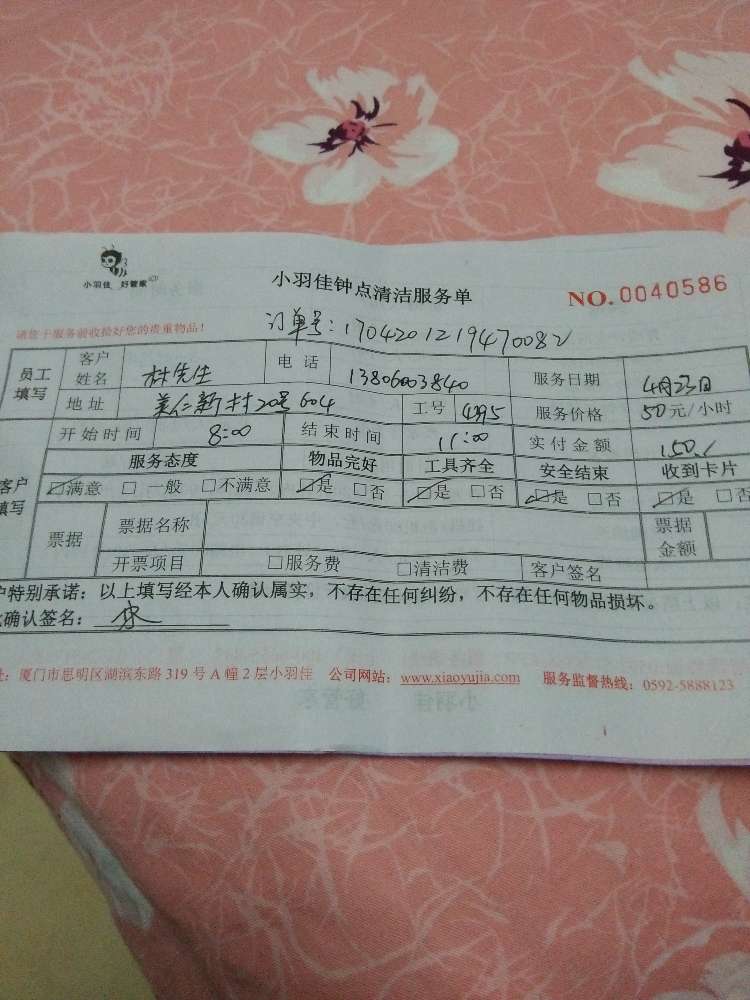 小羽佳 好管家
小羽佳钟点清洁服务单
NO. 0040586
请您于服务前收拾好您的贵重物品!
订单号:1704201219470082
员工填写 客户姓名 林先生 电话 13806003840 服务日期 4月23日
地址 美仁新村20号604 工号 4395 服务价格 50元/小时
开始时间 8:00 结束时间 11:00 实付金额 150./
客户填写 服务态度 物品完好 工具齐全 安全结束 收到卡片
☑满意 □一般 □不满意 ☑是 □否 ☑是 □否 ☑是 □否 ☑是 □否
票据 票据名称 票据金额
开票项目 □服务费 □清洁费 客户签名
户特别承诺:以上填写经本人确认属实,不存在任何纠纷,不存在任何物品损坏。
确认签名:林
址:厦门市思明区湖滨东路319号A幢2层小羽佳 公司网站:www.xiaoyujia.com 服务监督热线:0592-5888123